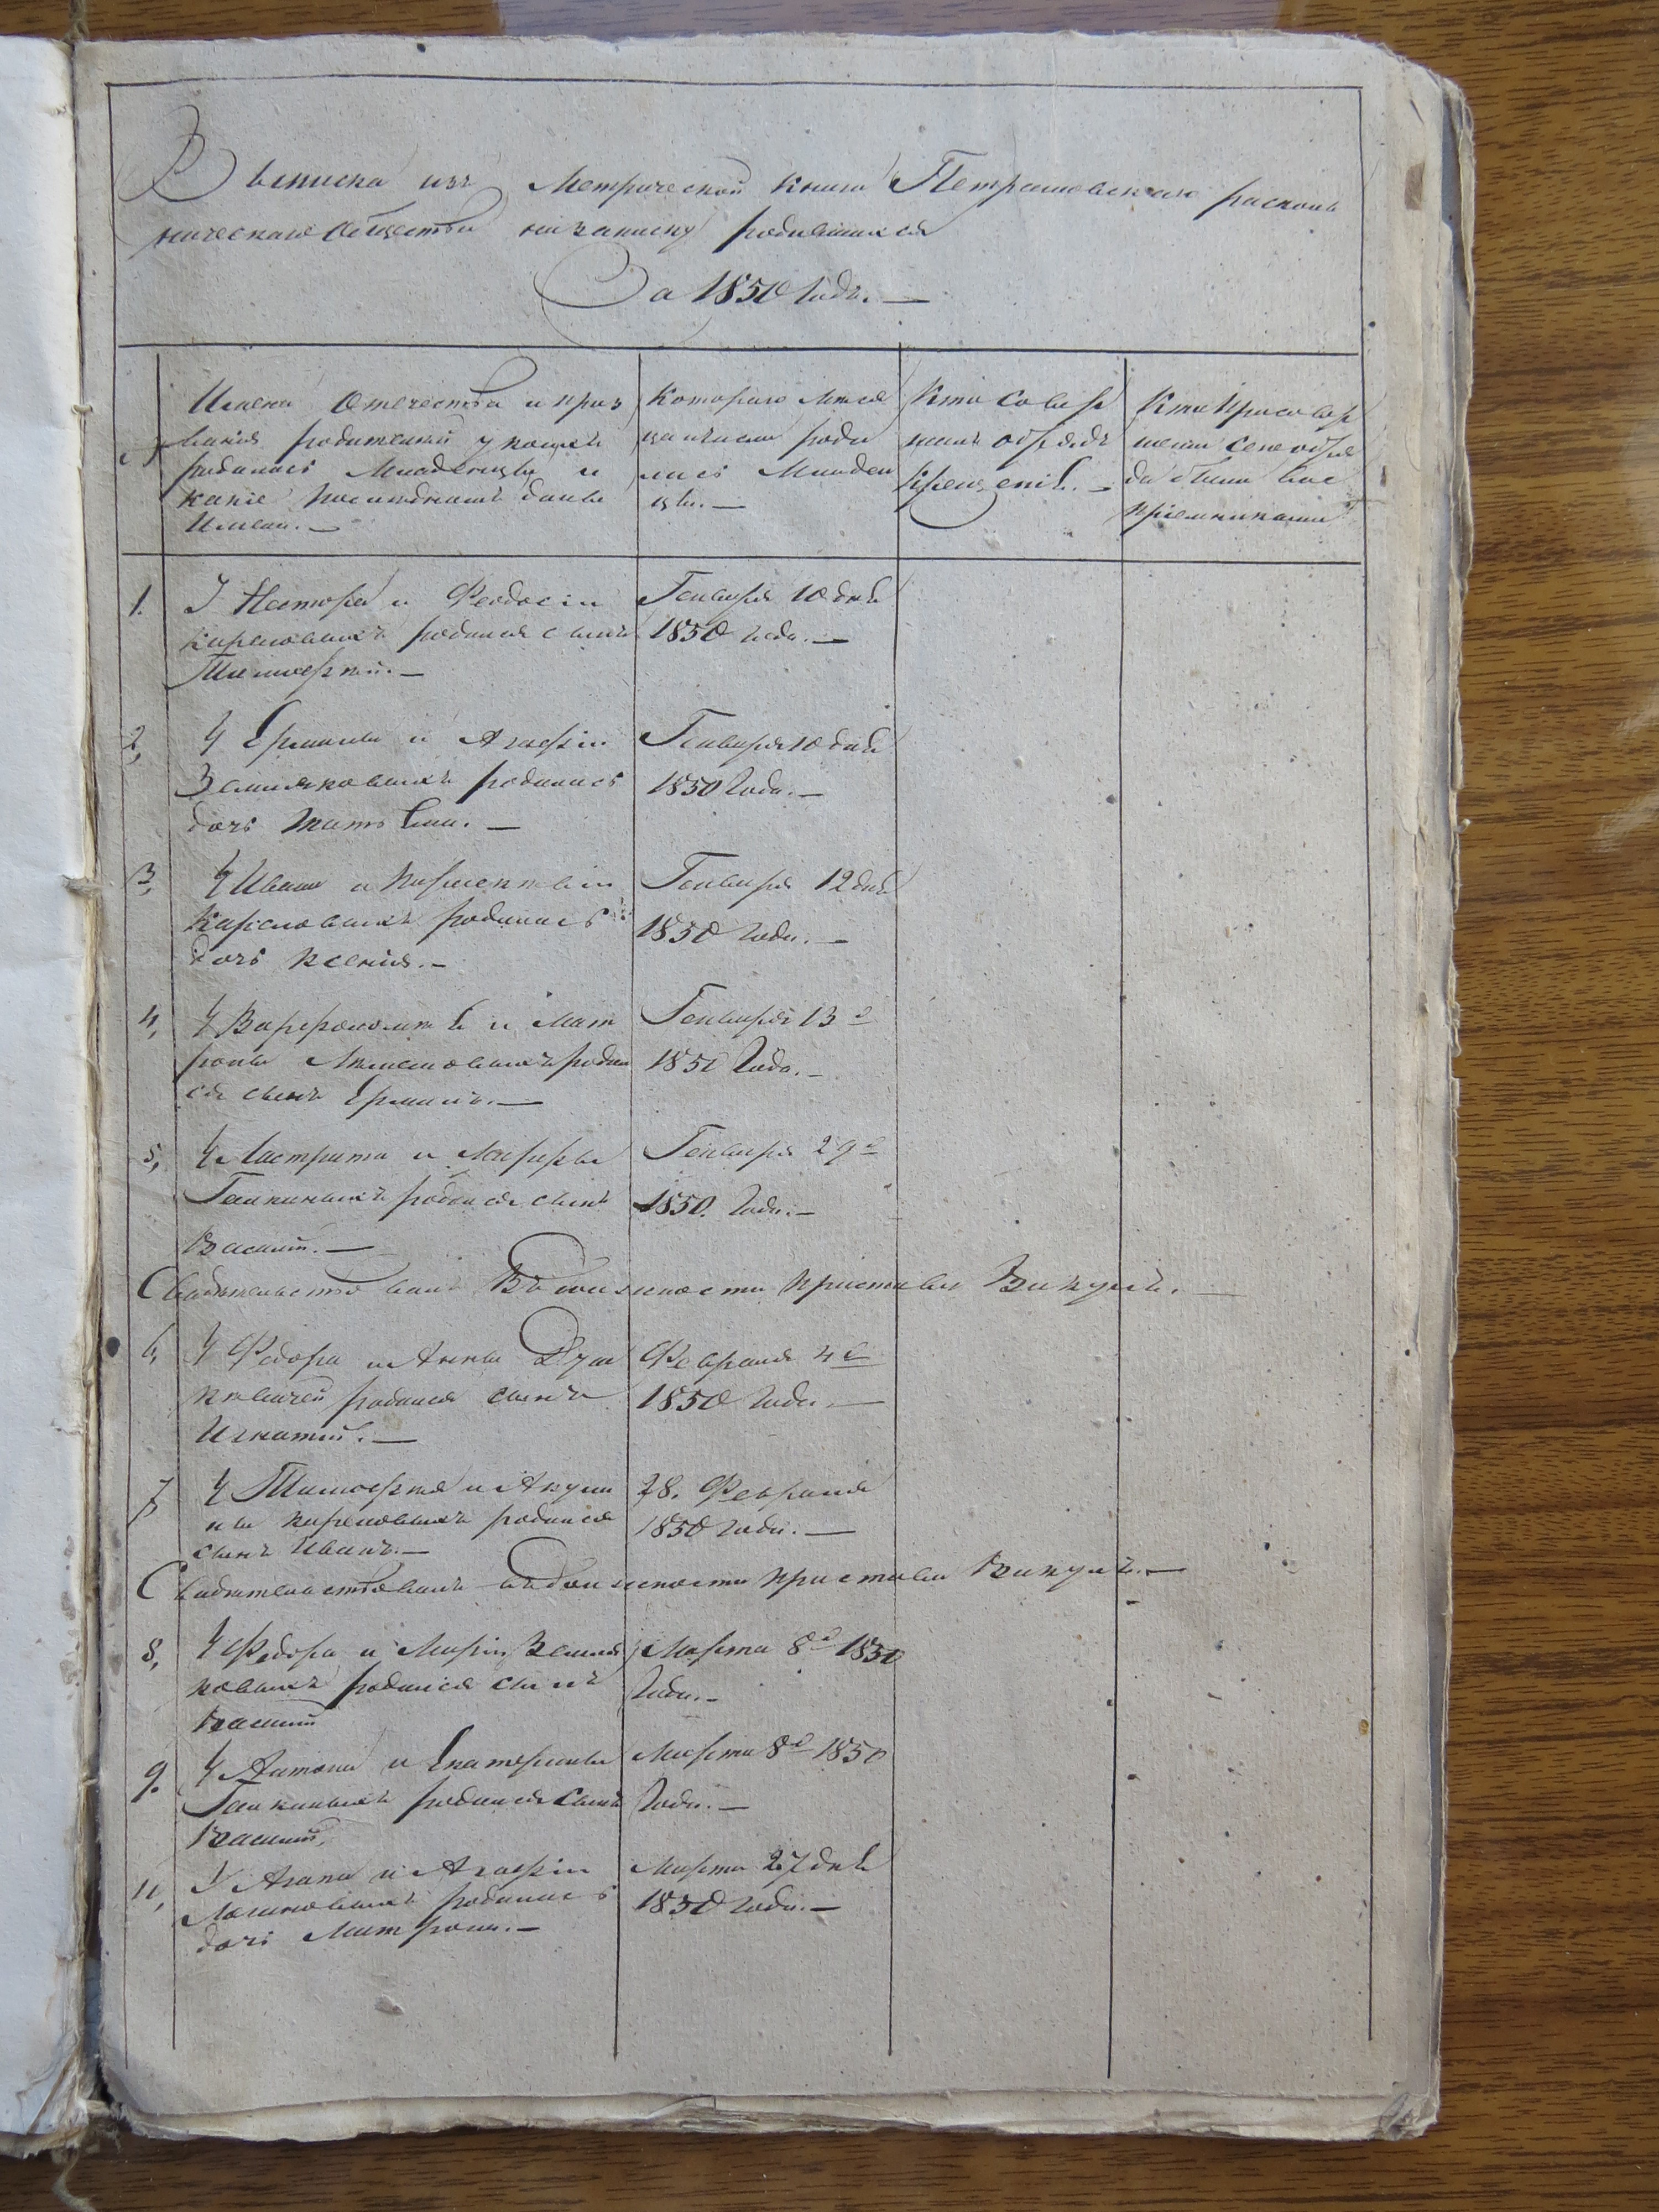 Выписка изъ Метрической книги Петрашовскаго расколь
ническаго общества на записку родившихся
За 1850 Годъ.—
№
Имена Отечества и проз
вания родителей у коихъ
родились Младенцы и
какіе последнимъ даны
Имена.—
Котораго месе
ца и числа роди
лись Младен
цы.—
Кто совер
шалъ обрядъ
Крещеніе.—
Кто при совер
шении сего обря
да были вос
пріемниками
1. У Нестора и Феодосіи
Кареловыхъ родился сынъ
Тимофей.—
Генваря 10 дня
1850 года.—
2, У Ермилы и Агафіи
Земляковыхъ родилась
дочь Татьяна.—
Генваря 10 дня
1850 Года.—
3, У Ивана и
Кареловыхъ родилась
дочь Ксенія.—
Генваря 12 дня
1850 года.—
4, У Варфоломея и Мат
роны родил
ся сынъ Ермилъ.—
Генваря 13 д
1850 Года.—
5, У и Марфы
Галкиныхъ родился сынъ
Василій.—
Генваря 29 д
1850. Года.—
Свидетельствовалъ В должности пристава Викулъ.—
6, У Федора и Анны
родился сынъ
Игнатій.—
Февраля 4 д
1850 Года.—
7, У Тимофея и Акули
ны Кареловыхъ родился
сынъ Иванъ.—
28. Февраля
1850 года.—
Свидетельствовалъ въ должности пристава Викулъ.—
8, У Федора и Маріи Земля
ковыхъ родился сынъ
Василий
Марта 8 д 1850
Года.—
9. У Антона и Екатерины
Галкиныхъ родился Сынъ
Василий,
Марта 8 д 1850
Года.—
У Агапа и Агафіи
родилась
дочь Матрона.—
Марта 27 дня
1850 года.—